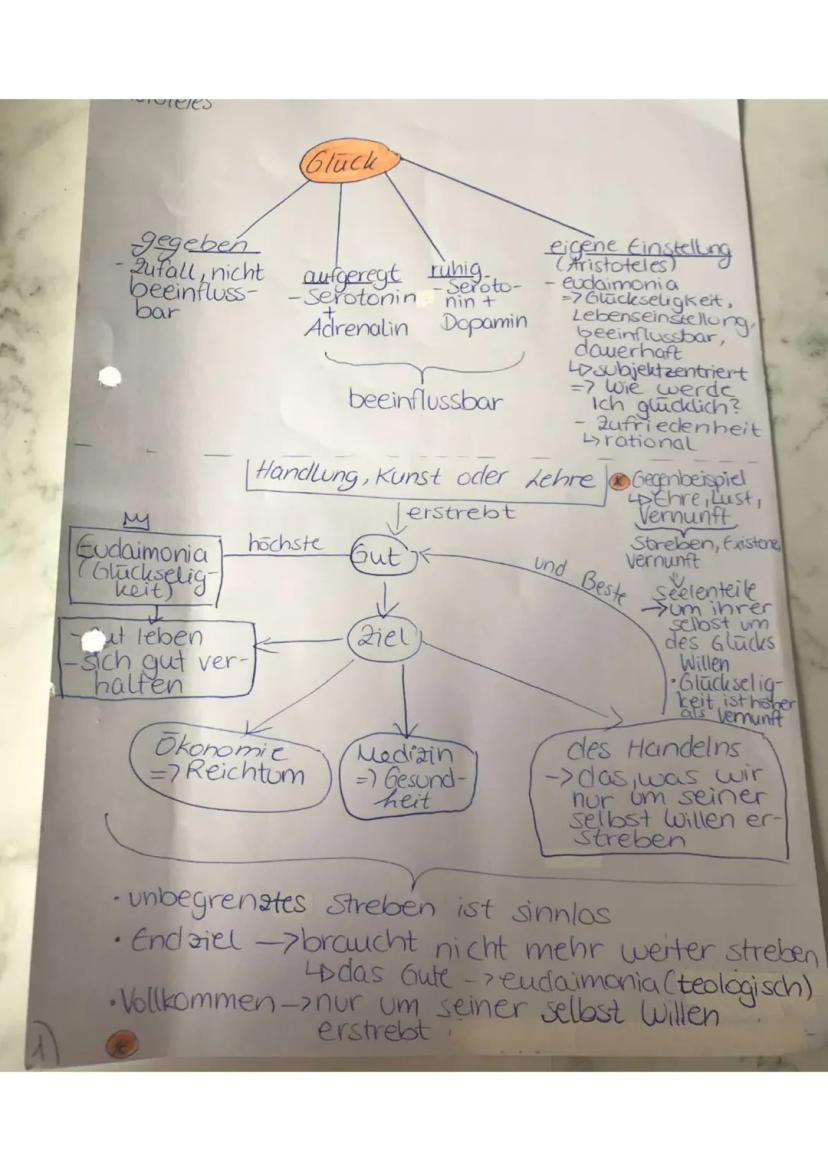 Glück
gegeben
- Zufall, nicht
beeinfluss-
bar
aufgeregt
- Serotonin
+
Adrenalin
ruhig
- Seroto-
nin +
Dopamin
beeinflussbar
eigene Einstellung
(Aristoteles)
- eudaimonia
=> Glückseligkeit,
Lebenseinstellung,
beeinflussbar,
dauerhaft
↳ subjektzentriert
=> Wie werde
Ich glücklich?
- Zufriedenheit
↳ rational
Handlung, Kunst oder Lehre
erstrebt
Eudaimonia
(Glückselig-
keit)
höchste
Gut
und Beste
- Gut leben
- sich gut ver-
halten
Ziel
Ökonomie
=> Reichtum
Medizin
=> Gesund-
heit
des Handelns
-> das, was wir
nur um seiner
selbst willen er-
streben
* Gegenbeispiel
↳ Ehre, Lust,
Vernunft
Streben, Existenz,
Vernunft
Seelenteile
-> um ihrer
selbst um
des Glücks
Willen
• Glückselig-
keit ist höher
als Vernunft
• unbegrenztes Streben ist sinnlos
• Endziel -> braucht nicht mehr weiter streben
↳ das Gute -> eudaimonia (teologisch)
• Vollkommen -> nur um seiner selbst willen
erstrebt
1)
*